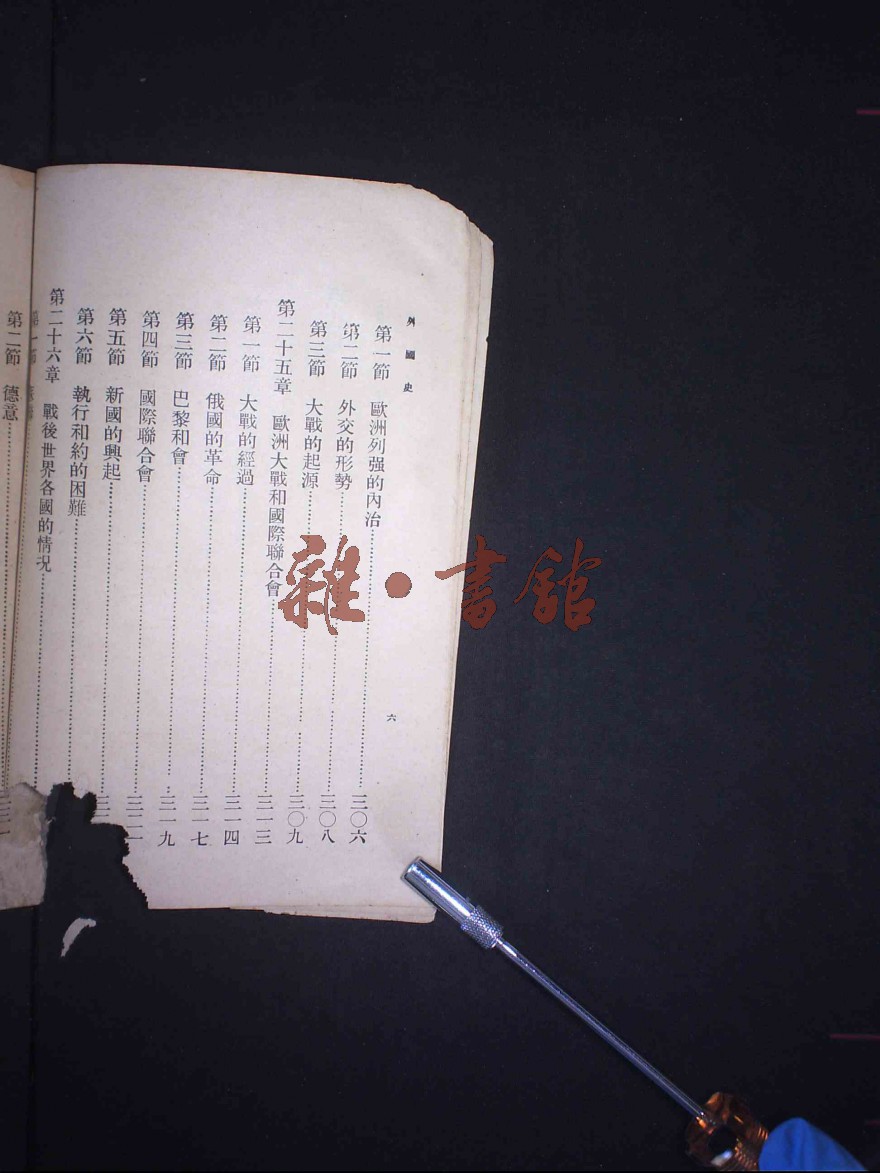 外國史
六
第一節 歐洲列强的內治……三〇六
第二節 外交的形勢……三〇八
第三節 大戰的起源……三〇九
第二十五章 歐洲大戰和國際聯合會……三一三
第一節 大戰的經過……三一四
第二節 俄國的革命……三一七
第三節 巴黎和會……三一九
第四節 國際聯合會……三二一
第五節 新國的興起……
第六節 執行和約的困難……
第二十六章 戰後世界各國的情況……
第一節
第二節 德意……
雜·書館